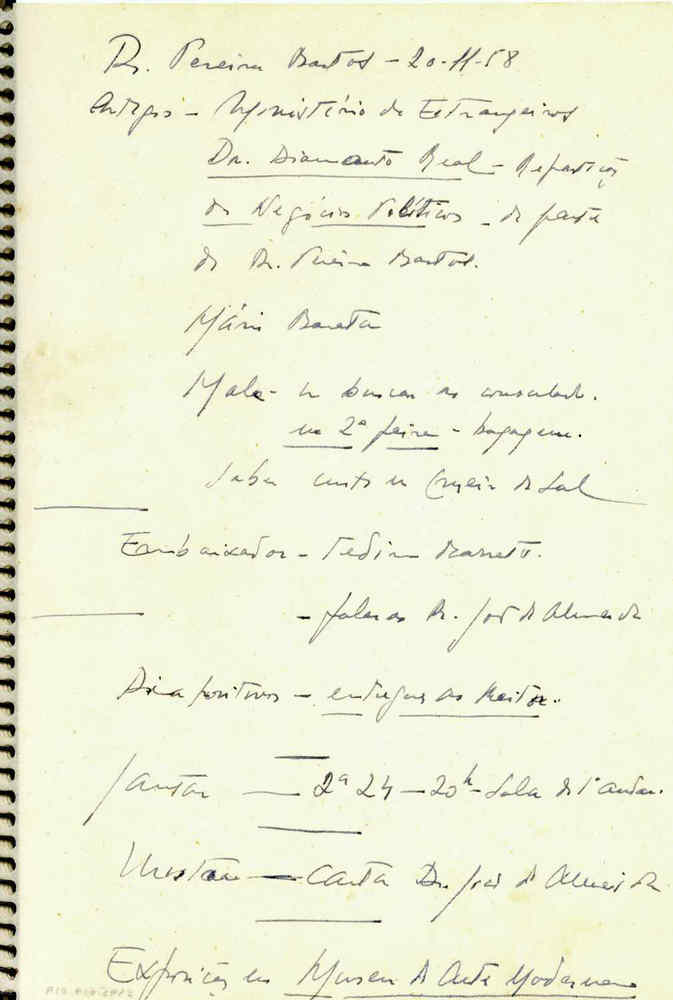 Dr. Pereira Bastos - 20-11-58
Artigos - Ministério de Estrangeiros
Dr. Diamantó Real - Repartição
dos Negócios Políticos - de parte
do Dr. Pereira Bastos.
Mário Barata
Mala - ir buscar ao consulado.
na 2ª feira - bagagem.
Saber
do Sul
Embaixador -
- falar ao Dr. José de Almeida
Diapositivos - entregar ao Reitor.
Jantar - 2ª 24 - 20h - Sala do 1º andar.
Mostrar - Carta Dr. José de Almeida
Exposição no Museu de Arte Moderna